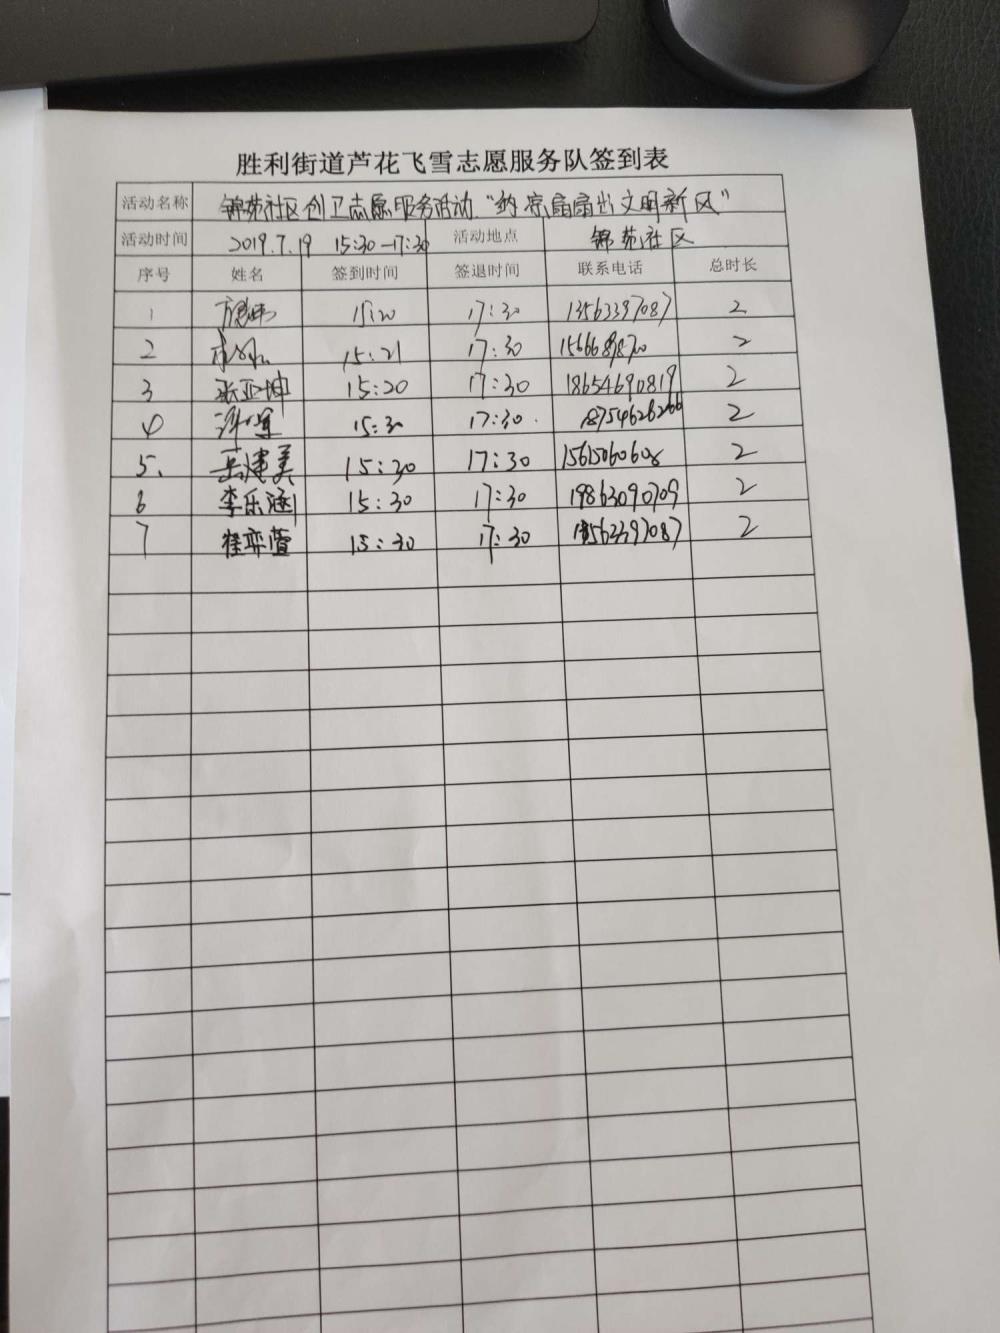 胜利街道芦花飞雪志愿服务队签到表
活动名称 锦苑社区创卫志愿服务活动"纳凉扇扇出文明新风"
活动时间 2019.7.19 15:30-17:30 活动地点 锦苑社区
序号 姓名 签到时间 签退时间 联系电话 总时长
1 15:20 17:30 13563397087 2
2 15:21 17:30 2
3 张亚坤 15:20 17:30 18654690819 2
4 15:30 17:30 18754626266 2
5. 岳建美 15:30 17:30 15615060608 2
6 李乐涵 15:30 17:30 19863090709 2
7 崔弈萱 15:30 17:30 13563397087 2